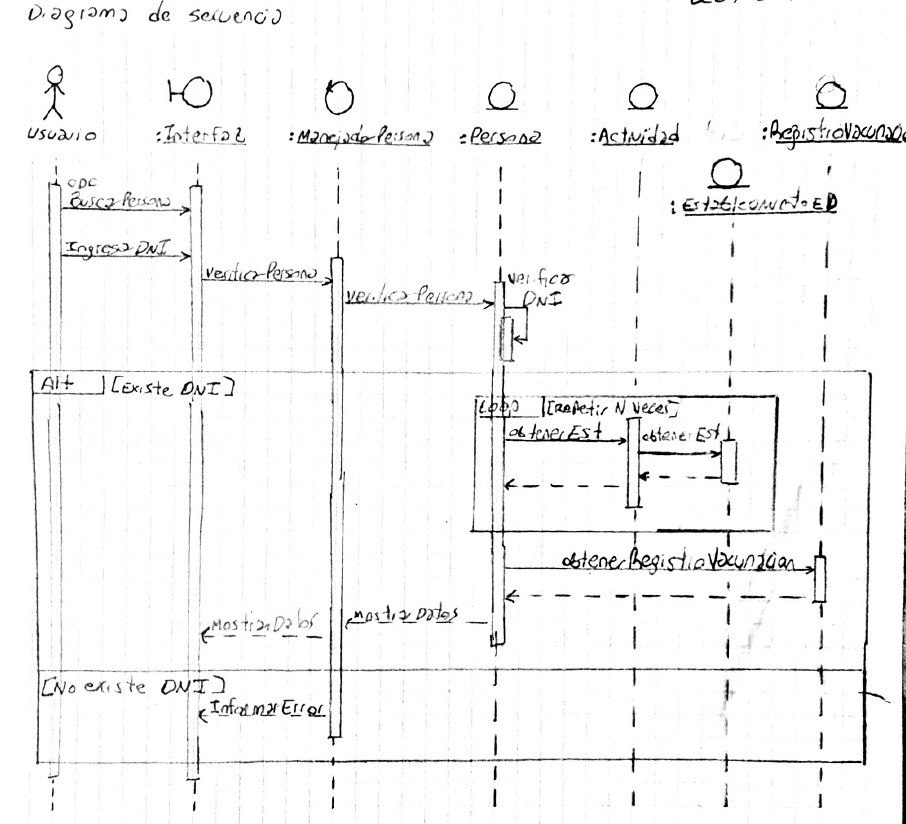 Diagrama de secuencia
Usuario
:Interfaz
:ManejadorPersona
:Persona
:Actividad
:RegistroVacunació
:EstablecimientoED
opc
BuscaPersona
IngresaDNI
verificaPersona
verificaPersona
verificar
DNI
Alt [Existe DNI]
Loop [Repetir N veces]
obtenerEst
obtenerEst
obtenerRegistroVacunacion
MostrarDatos
MostrarDatos
[No existe DNI]
InformarError